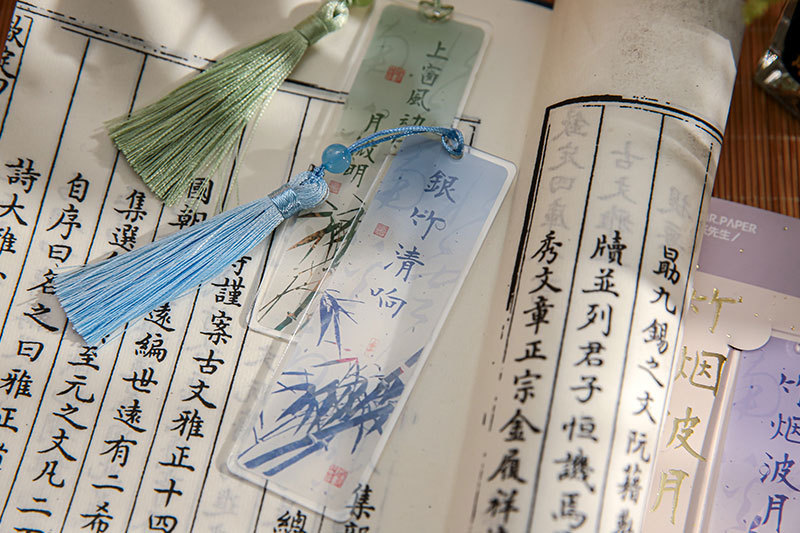 上窗風
銀竹清响
勗九錫之文阮籍
牘並列君子恒譏焉
秀文章正宗金履祥
集
總
謹案古文雅正十四
國朝
遠編世遠有二希
集選
至元之文凡二
自序曰名之曰雅正
詩大雅
R.PAPER
先生/
竹烟波月
竹烟波月